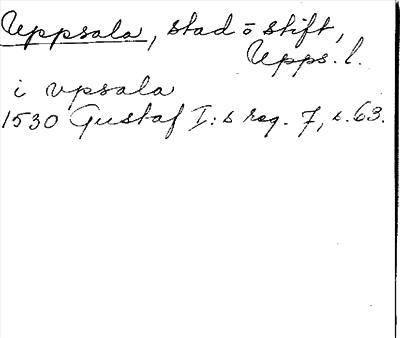 Uppsala, stad o stift,
Upps. l.
i vpsala
1530 Gustaf I:s reg. 7, s. 63.